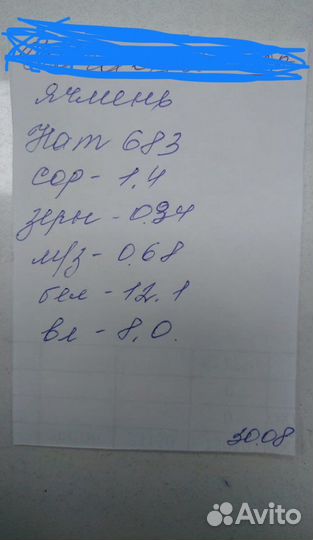 ячмень
Нат 683
сор - 1,4
зерн - 0.34
м/з - 0.68
бел - 12.1
вл - 8,0.
30.08
Avito